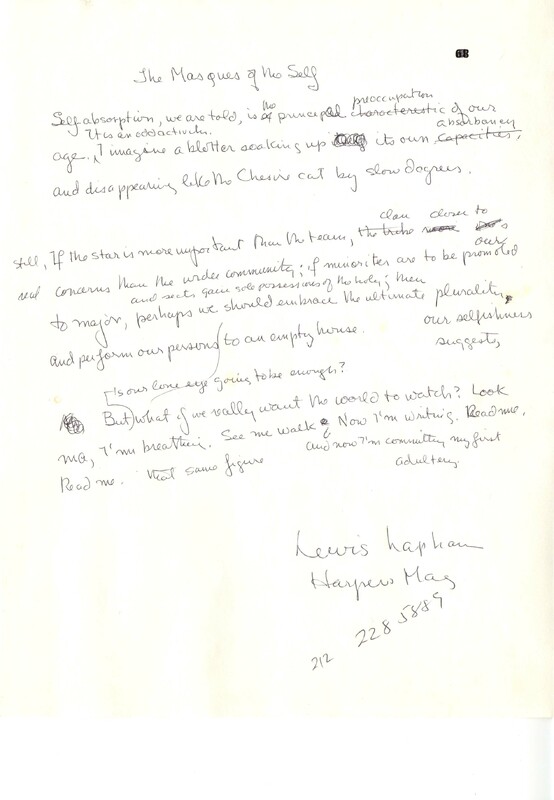 The Masques of the Self
the preoccupation
Self absorption, we are told, is the principal characteristic of our
It is an odd activity. absorbancy
age. I imagine a blotter soaking up its own capacities,
and disappearing like the Chesire cat by slow degrees.
clan closer to
still, If the star is more important than the team, the tribe
real concerns than the wider community; if minorities are to be promoted our
and sects gain sole possession of the holy; then
to major, perhaps we should embrace the ultimate plurality,
and perform our persons to an empty house. our selfishness
suggests,
Is our lone eye going to be enough?
But what if we really want the world to watch? Look
ma, I'm breathing. See me walk. Now I'm writing. Read me.
and now I'm committing my first
Read me. that same figure adultery.
Lewis Lapham
Harpers Mag
212 228 5889